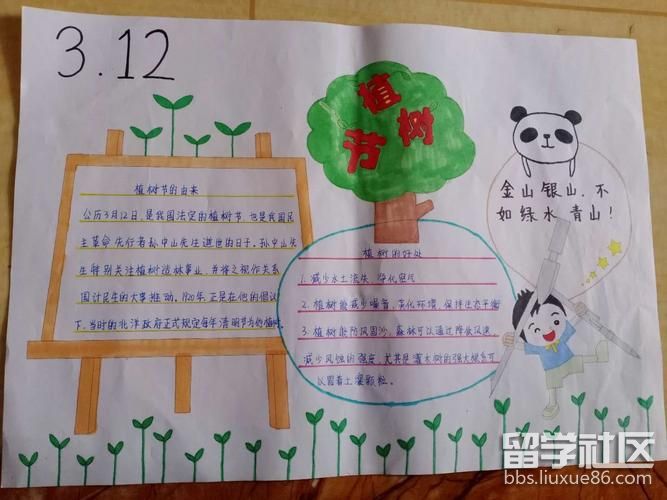 3.12
植树节
植树节的由来
公历3月12日,是我国法定的植树节,也是我国民
主革命先行者孙中山先生逝世的日子。孙中山先
生特别关注植树造林事业,并将之视作关系
国计民生的大事推动。1920年,正是在他的倡议
下,当时的北洋政府正式规定每年清明节为植树
植树的好处
1.减少水土流失,净化空气
2.植树能减少噪音,美化环境,保持生态平衡
3.植树能防风固沙,森林可以通过降低风速,
减少风蚀的强度,尤其是灌木树的强大根系可
以固着土壤颗粒。
金山银山,不
如绿水青山!
留学社区
bbs.liuxue86.com